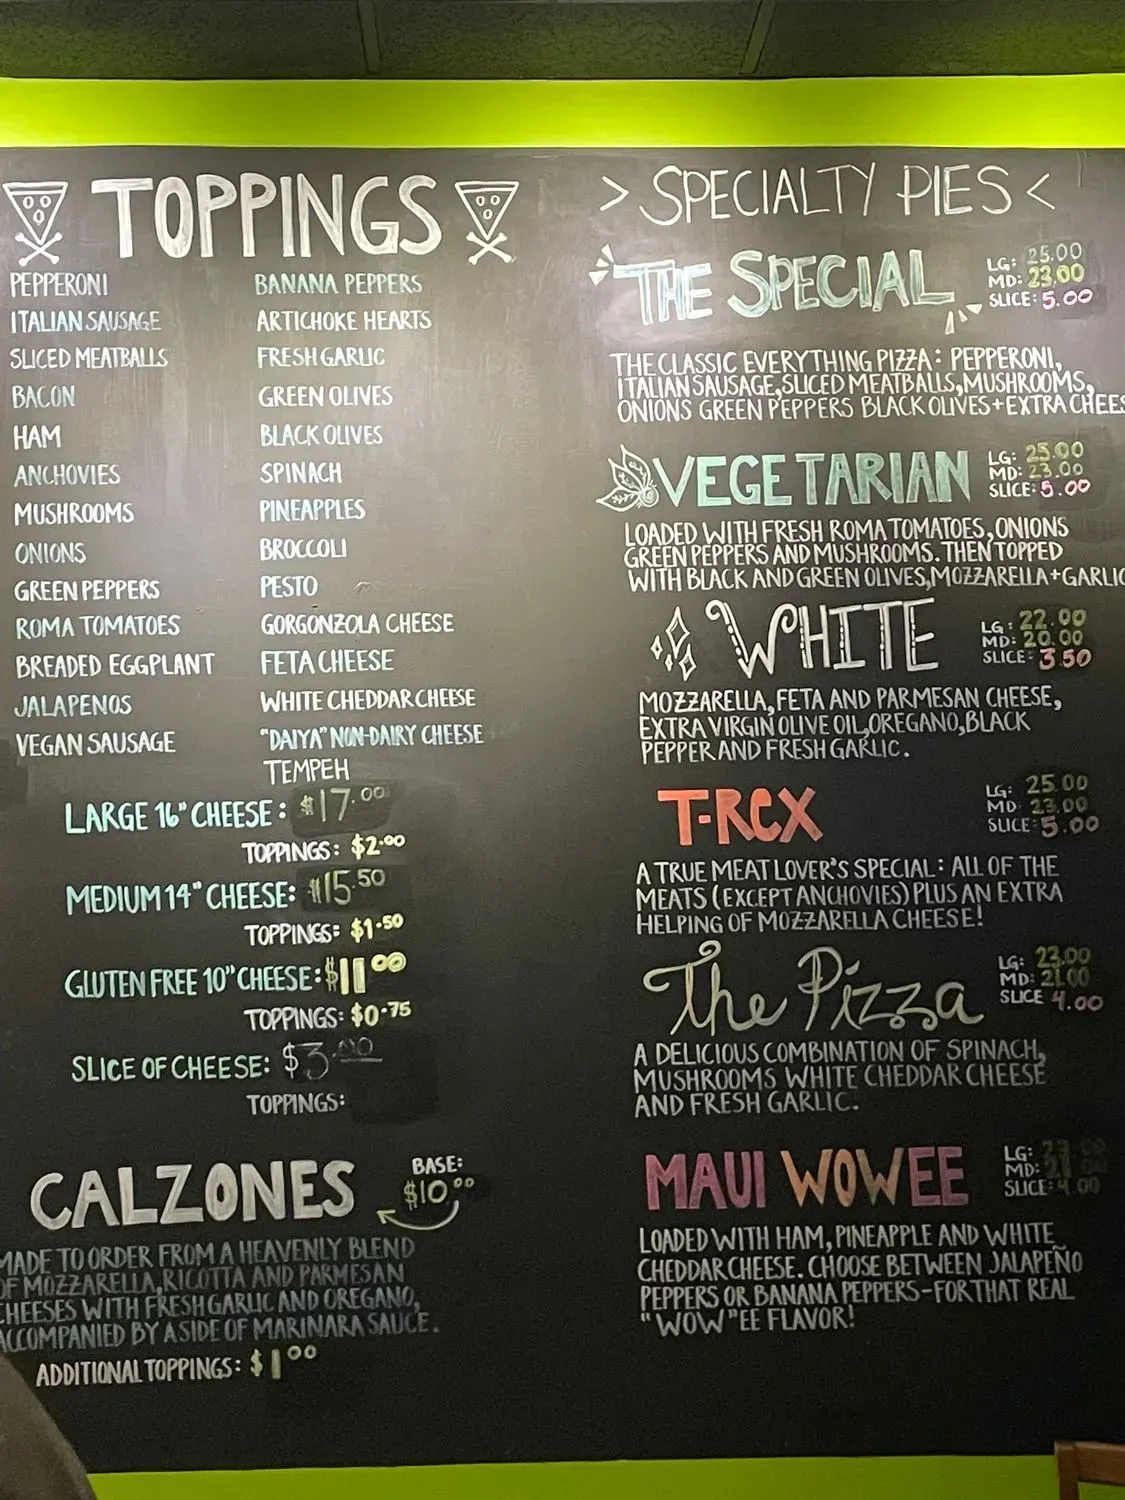 TOPPINGS
PEPPERONI
ITALIAN SAUSAGE
SLICED MEATBALLS
BACON
HAM
ANCHOVIES
MUSHROOMS
ONIONS
GREEN PEPPERS
ROMA TOMATOES
BREADED EGGPLANT
JALAPENOS
VEGAN SAUSAGE
BANANA PEPPERS
ARTICHOKE HEARTS
FRESH GARLIC
GREEN OLIVES
BLACK OLIVES
SPINACH
PINEAPPLES
BROCCOLI
PESTO
GORGONZOLA CHEESE
FETA CHEESE
WHITE CHEDDAR CHEESE
"DAIYA" NON-DAIRY CHEESE
TEMPEH
LARGE 16" CHEESE: $17.00
TOPPINGS: $2.00
MEDIUM 14" CHEESE: $15.50
TOPPINGS: $1.50
GLUTEN FREE 10" CHEESE: $11.00
TOPPINGS: $0.75
SLICE OF CHEESE: $3.00
TOPPINGS:
CALZONES
BASE:
$10.00
MADE TO ORDER FROM A HEAVENLY BLEND
OF MOZZARELLA, RICOTTA AND PARMESAN
CHEESES WITH FRESH GARLIC AND OREGANO,
ACCOMPANIED BY A SIDE OF MARINARA SAUCE.
ADDITIONAL TOPPINGS: $1.00
> SPECIALTY PIES <
THE SPECIAL
LG: 25.00
MD: 23.00
SLICE: 5.00
THE CLASSIC EVERYTHING PIZZA: PEPPERONI,
ITALIAN SAUSAGE, SLICED MEATBALLS, MUSHROOMS,
ONIONS GREEN PEPPERS BLACK OLIVES + EXTRA CHEES
VEGETARIAN
LG: 25.00
MD: 23.00
SLICE: 5.00
LOADED WITH FRESH ROMA TOMATOES, ONIONS
GREEN PEPPERS AND MUSHROOMS. THEN TOPPED
WITH BLACK AND GREEN OLIVES, MOZZARELLA + GARLIC
WHITE
LG: 22.00
MD: 20.00
SLICE: 3.50
MOZZARELLA, FETA AND PARMESAN CHEESE,
EXTRA VIRGIN OLIVE OIL, OREGANO, BLACK
PEPPER AND FRESH GARLIC.
T-REX
LG: 25.00
MD: 23.00
SLICE: 5.00
A TRUE MEAT LOVER'S SPECIAL: ALL OF THE
MEATS (EXCEPT ANCHOVIES) PLUS AN EXTRA
HELPING OF MOZZARELLA CHEESE!
The Pizza
LG: 23.00
MD: 21.00
SLICE 4.00
A DELICIOUS COMBINATION OF SPINACH,
MUSHROOMS WHITE CHEDDAR CHEESE
AND FRESH GARLIC.
MAUI WOWEE
LG: 23.00
MD: 21.00
SLICE: 4.00
LOADED WITH HAM, PINEAPPLE AND WHITE
CHEDDAR CHEESE. CHOOSE BETWEEN JALAPEÑO
PEPPERS OR BANANA PEPPERS - FOR THAT REAL
"WOW"EE FLAVOR!